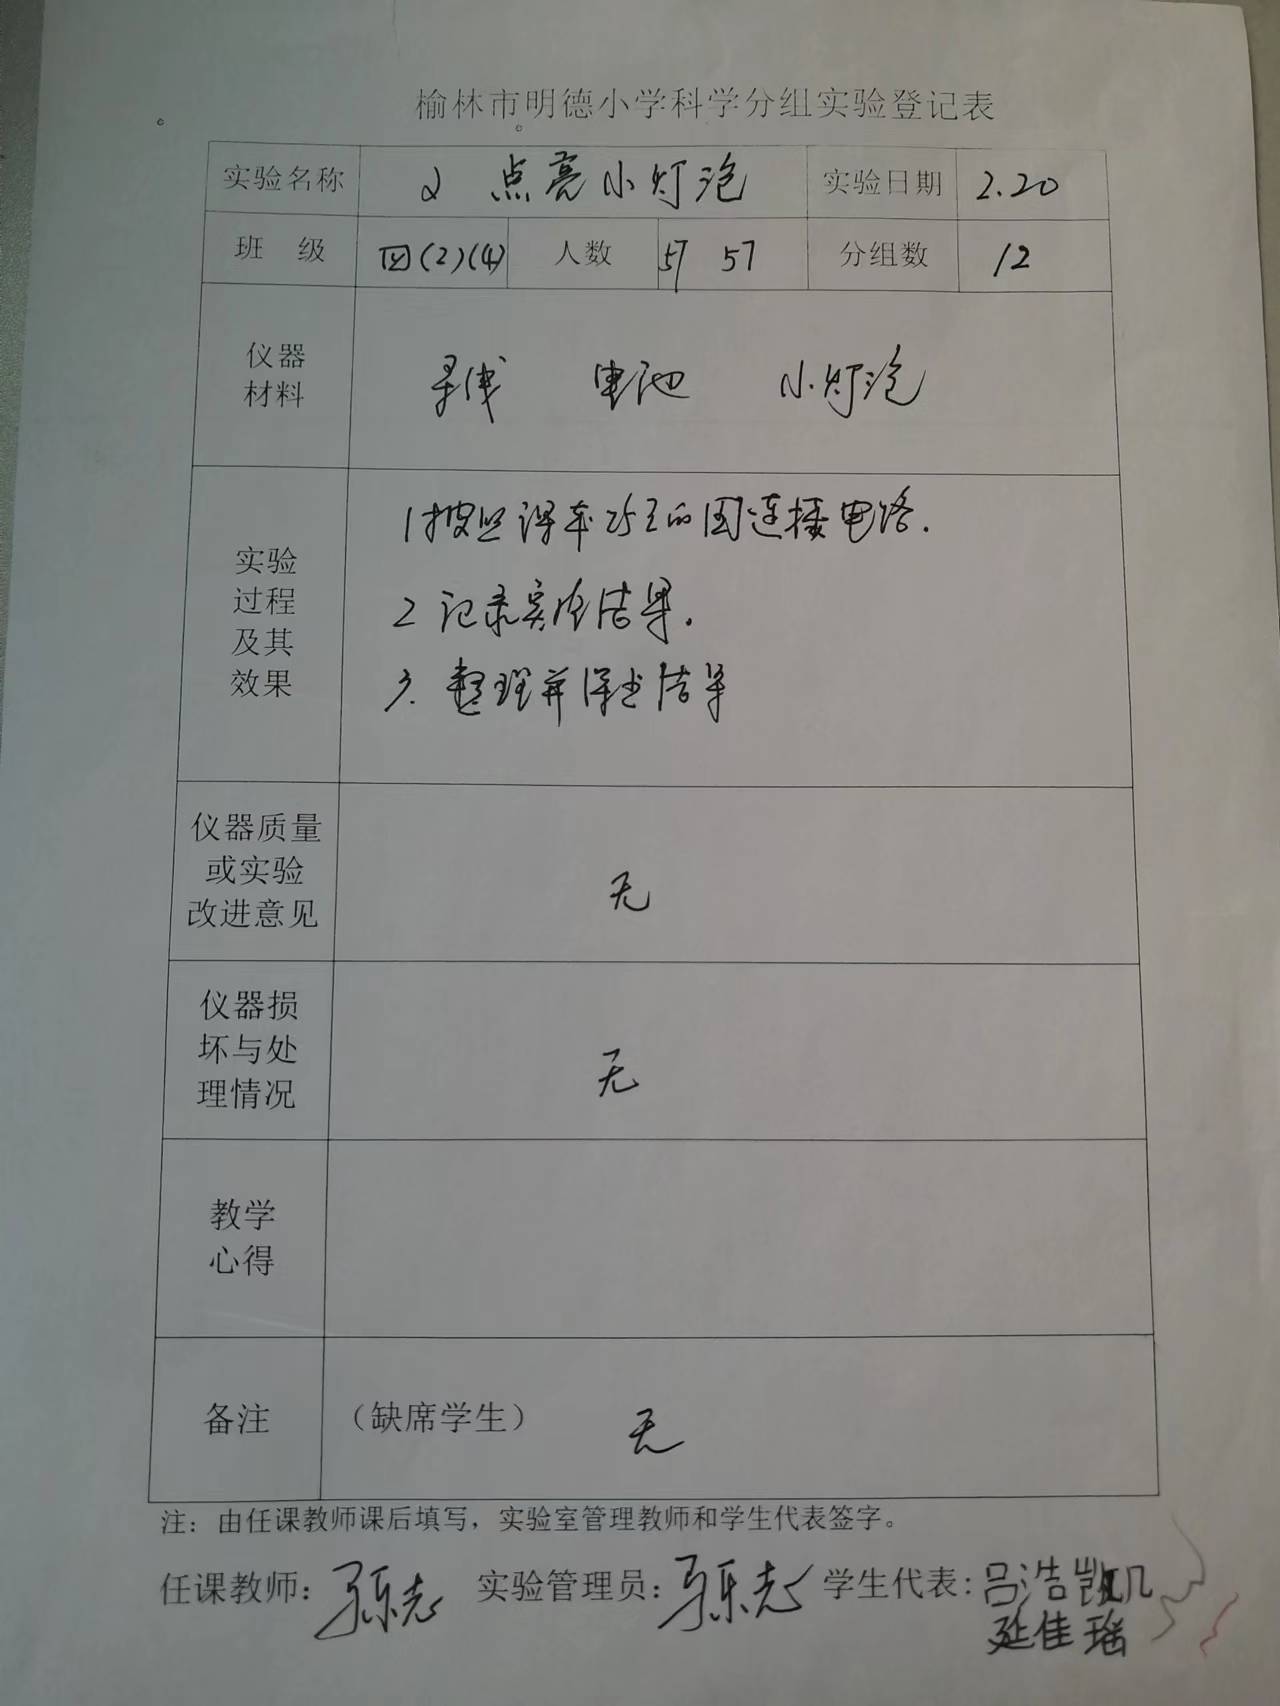 榆林市明德小学科学分组实验登记表
实验名称 2 点亮小灯泡 实验日期 2.20
班 级 四(2)(4) 人数 57 57 分组数 12
仪器
材料
导线 电池 小灯泡
实验
过程
及其
效果
1按照课本 的图连接电路.
2 记录实验结果.
3. 整理并得出结果
仪器质量
或实验
改进意见
无
仪器损
坏与处
理情况
无
教学
心得
备注
(缺席学生) 无
注：由任课教师课后填写，实验室管理教师和学生代表签字。
任课教师: 实验管理员: 学生代表: 吕浩凯
延佳瑶